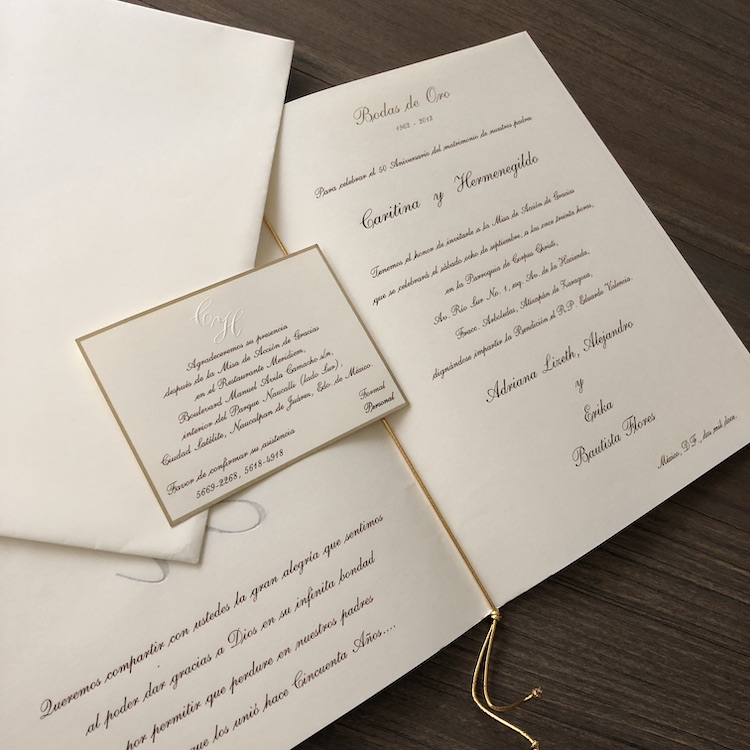 Bodas de Oro
1962 - 2012
Para celebrar el 50 Aniversario del matrimonio de nuestros padres
Caritina y Hermenegildo
Tenemos el honor de invitarle a la Misa de Acción de Gracias
que se celebrará el sábado ocho de septiembre, a las once treinta horas,
en la Parroquia de Corpus Christi,
Av. Río Sur No. 1, esq. Av. de la Hacienda,
Fracc. Arboledas, Atizapán de Zaragoza,
dignándose impartir la Bendición el R.P. Eduardo Valencia.
Adriana Lizeth, Alejandro
y
Erika
Bautista Flores
México, D.F., dos mil doce.
CyH
Agradeceremos su presencia
después de la Misa de Acción de Gracias
en el Restaurante Meridiem,
Boulevard Manuel Avila Camacho s/n,
interior del Parque Naucalli (lado Sur),
Ciudad Satélite, Naucalpan de Juárez, Edo. de México.
Formal
Personal
Favor de confirmar su asistencia
5669-2268, 5618-4918
Queremos compartir con ustedes la gran alegría que sentimos
al poder dar gracias a Dios en su infinita bondad
por permitir que perdure en nuestros padres
que los unió hace Cincuenta Años....